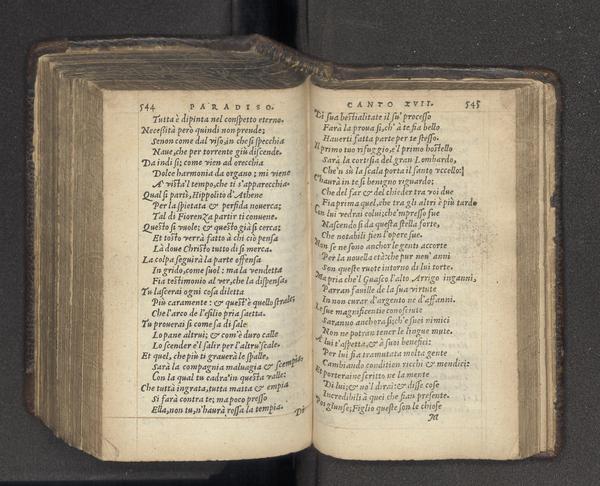 544 PARADISO.
Tutta è dipinta nel conspetto eterno.
Necessità però quindi non prende;
Senon come dal viso, in che si specchia
Naue, che per torrente giù discende.
Da indi si; come vien ad orecchia
Dolce harmonia da organo; mi viene
A' vista'l tempo, che ti s'apparecchia.
Qual si partì, Hippolito d'Athene
Per la spietata & perfida nouerca;
Tal di Fiorenza partir ti conuene.
Questo si vuole; & questo già si cerca;
Et tosto verrà fatto à chi ciò pensa
Là doue Christo tutto dì si merca.
La colpa seguirà la parte offensa
In grido, come suol: ma la vendetta
Fia testimonio al ver, che la dispensa.
Tu lascerai ogni cosa diletta
Più caramente: & quest'è quello strale,
Che l'arco de l'essilio pria saetta.
Tu prouerai si come sa di sale
Lo pane altrui; & com'è duro calle
Lo scender e'l salir per l'altru' scale.
Et quel, che più ti grauerà le spalle,
Sarà la compagnia maluagia & scempia,
Con la qual tu cadra' in questa valle:
Che tutta ingrata, tutta matta & empia
Si farà contra te; ma poco presso
Ella, non tu, n'haurà rossa la tempia.
Di
CANTO XVII. 545
Di sua bestialitate il su' processo
Farà la proua sì, ch'à te fia bello
Hauerti fatta parte per te stesso.
Il primo tuo rifuggio, e'l primo hostello
Sarà la cortesia del gran Lombardo,
Che'n sù la scala porta il santo vccello:
C'haurà in te sì benigno riguardo;
Che del far & del chieder tra voi due
Fia prima quel, che tra gli altri è più tardo
Con lui vedrai colui; che'mpresso fue
Nascendo sì da questa stella forte,
Che notabili fien l'opere sue.
Non se ne sono anchor le genti accorte
Per la nouella età: che pur neu' anni
Son queste ruote intorno di lui torte.
Ma pria che'l Guasco l'alto Arrigo inganni,
Parran fauille de la sua virtute
In non curar d'argento ne d'affanni.
Le sue magnificentie conosciute
Saranno anchora sì; ch'e suoi nimici
Non ne potran tener le lingue mute.
A lui t'aspetta, & à suoi benefici:
Per lui fia tramutata molta gente
Cambiando condition ricchi & mendici:
Et porteraine scritto ne la mente
Di lui; & no'l dirai: & disse cose
Incredibili à quei che fian presente.
Poi giunse; Figlio queste son le chiose
M